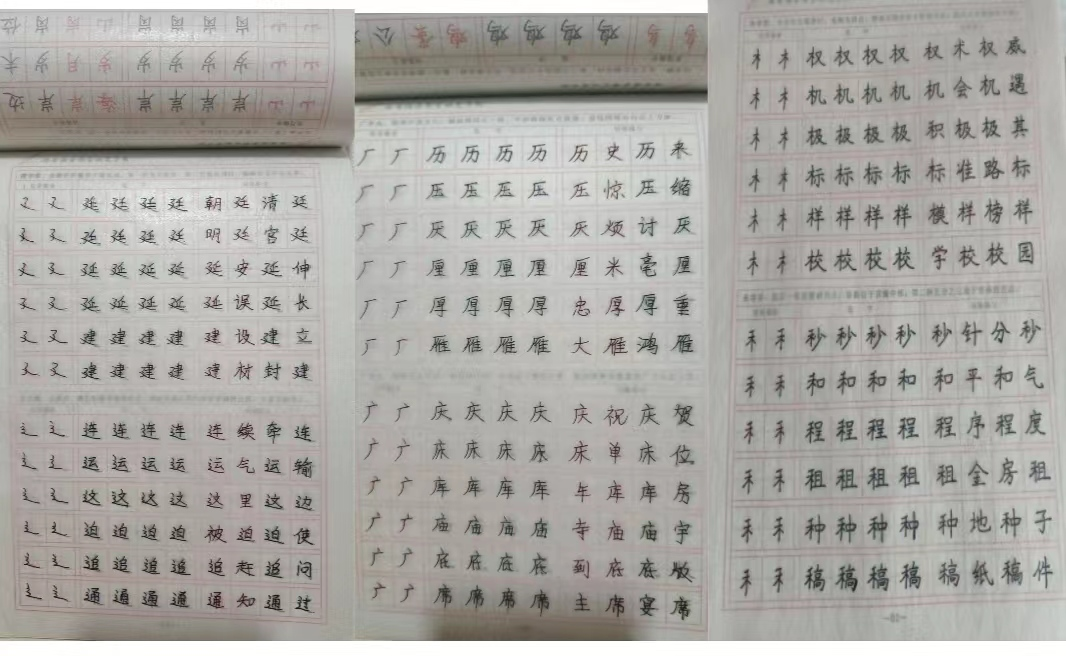 廴 廴 廷 廷 廷 廷 朝 廷 清 廷
廴 廴 廷 廷 廷 廷 明 廷 宫 廷
廴 廴 延 延 延 延 延 安 延 伸
廴 廴 延 延 延 延 延 误 延 长
廴 廴 建 建 建 建 建 设 建 立
廴 廴 建 建 建 建 建 材 封 建
辶 辶 连 连 连 连 连 续 牵 连
辶 辶 运 运 运 运 运 气 运 输
辶 辶 这 这 这 这 这 里 这 边
辶 辶 迫 迫 迫 迫 被 迫 迫 使
辶 辶 追 追 追 追 追 赶 追 问
辶 辶 通 通 通 通 通 知 通 过
厂 厂 历 历 历 历 历 史 历 来
厂 厂 压 压 压 压 压 惊 压 缩
厂 厂 厌 厌 厌 厌 厌 烦 讨 厌
厂 厂 厘 厘 厘 厘 厘 米 毫 厘
厂 厂 厚 厚 厚 厚 忠 厚 厚 重
厂 厂 雁 雁 雁 雁 大 雁 鸿 雁
广 广 庆 庆 庆 庆 庆 祝 庆 贺
广 广 床 床 床 床 床 单 床 位
广 广 库 库 库 库 车 库 库 房
广 广 庙 庙 庙 庙 寺 庙 庙 宇
广 广 底 底 底 底 到 底 底 版
广 广 席 席 席 席 主 席 宴 席
木 木 权 权 权 权 权 术 权 威
木 木 机 机 机 机 机 会 机 遇
木 木 极 极 极 极 积 极 极 其
木 木 标 标 标 标 标 准 路 标
木 木 样 样 样 样 模 样 榜 样
木 木 校 校 校 校 学 校 校 园
禾 禾 秒 秒 秒 秒 秒 针 分 秒
禾 禾 和 和 和 和 和 平 和 气
禾 禾 程 程 程 程 程 序 程 度
禾 禾 租 租 租 租 租 金 房 租
禾 禾 种 种 种 种 种 地 种 子
禾 禾 稿 稿 稿 稿 稿 纸 稿 件